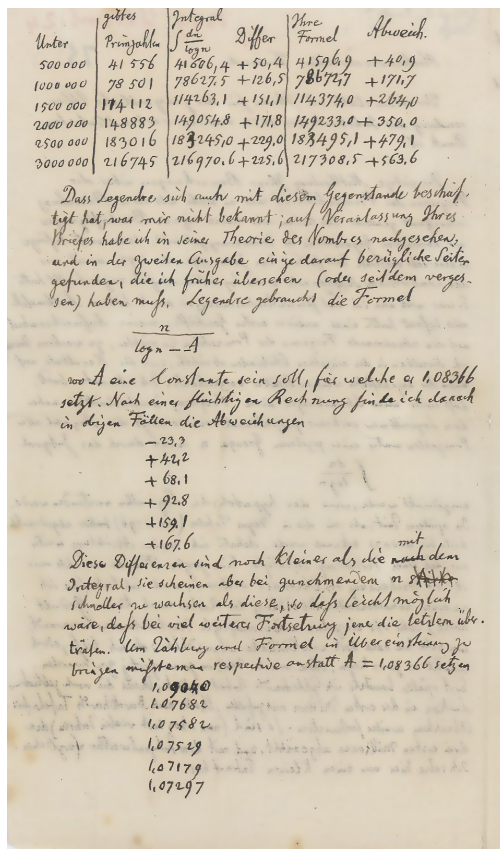 Unter | gibtes Primzahlen | Integral ∫ dn/logn | Differ | Ihre Formel | Abweich.
500000 | 41556 | 41606,4 | +50,4 | 41596,9 | +40,9
1000000 | 78501 | 78627,5 | +126,5 | 78672,7 | +171,7
1500000 | 114112 | 114263,1 | +151,1 | 114374,0 | +264,0
2000000 | 148883 | 149054,8 | +171,8 | 149233,0 | +350,0
2500000 | 183016 | 183245,0 | +229,0 | 183495,1 | +479,1
3000000 | 216745 | 216970,6 | +225,6 | 217308,5 | +563,6
Dass Legendre sich auch mit diesem Gegenstande beschäf-
tigt hat, war mir nicht bekannt; auf Veranlassung Ihres
Briefes habe ich in seiner Theorie des Nombres nachgesehen,
und in der zweiten Ausgabe einige darauf bezügliche Seiten
gefunden, die ich früher übersehen (oder seitdem verges-
sen) haben muß. Legendre gebraucht die Formel
n
logn − A
wo A eine Constante sein soll, für welche er 1,08366
setzt. Nach einer flüchtigen Rechnung finde ich danach
in obigen Fällen die Abweichungen
−23,3
+42,2
+68,1
+92,8
+159,1
+167,6
Diese Differenzen sind noch kleiner als die mit dem
Integral, sie scheinen aber bei zunehmendem n
schneller zu wachsen als diese, so daß leicht möglich
wäre, daß bei viel weiterer Fortsetzung jene die letztern über-
träfen. Um Zählung und Formel in Übereinstimmung zu
bringen müßte man respective anstatt A = 1,08366 setzen
1,09040
1,07682
1,07582
1,07529
1,07179
1,07297